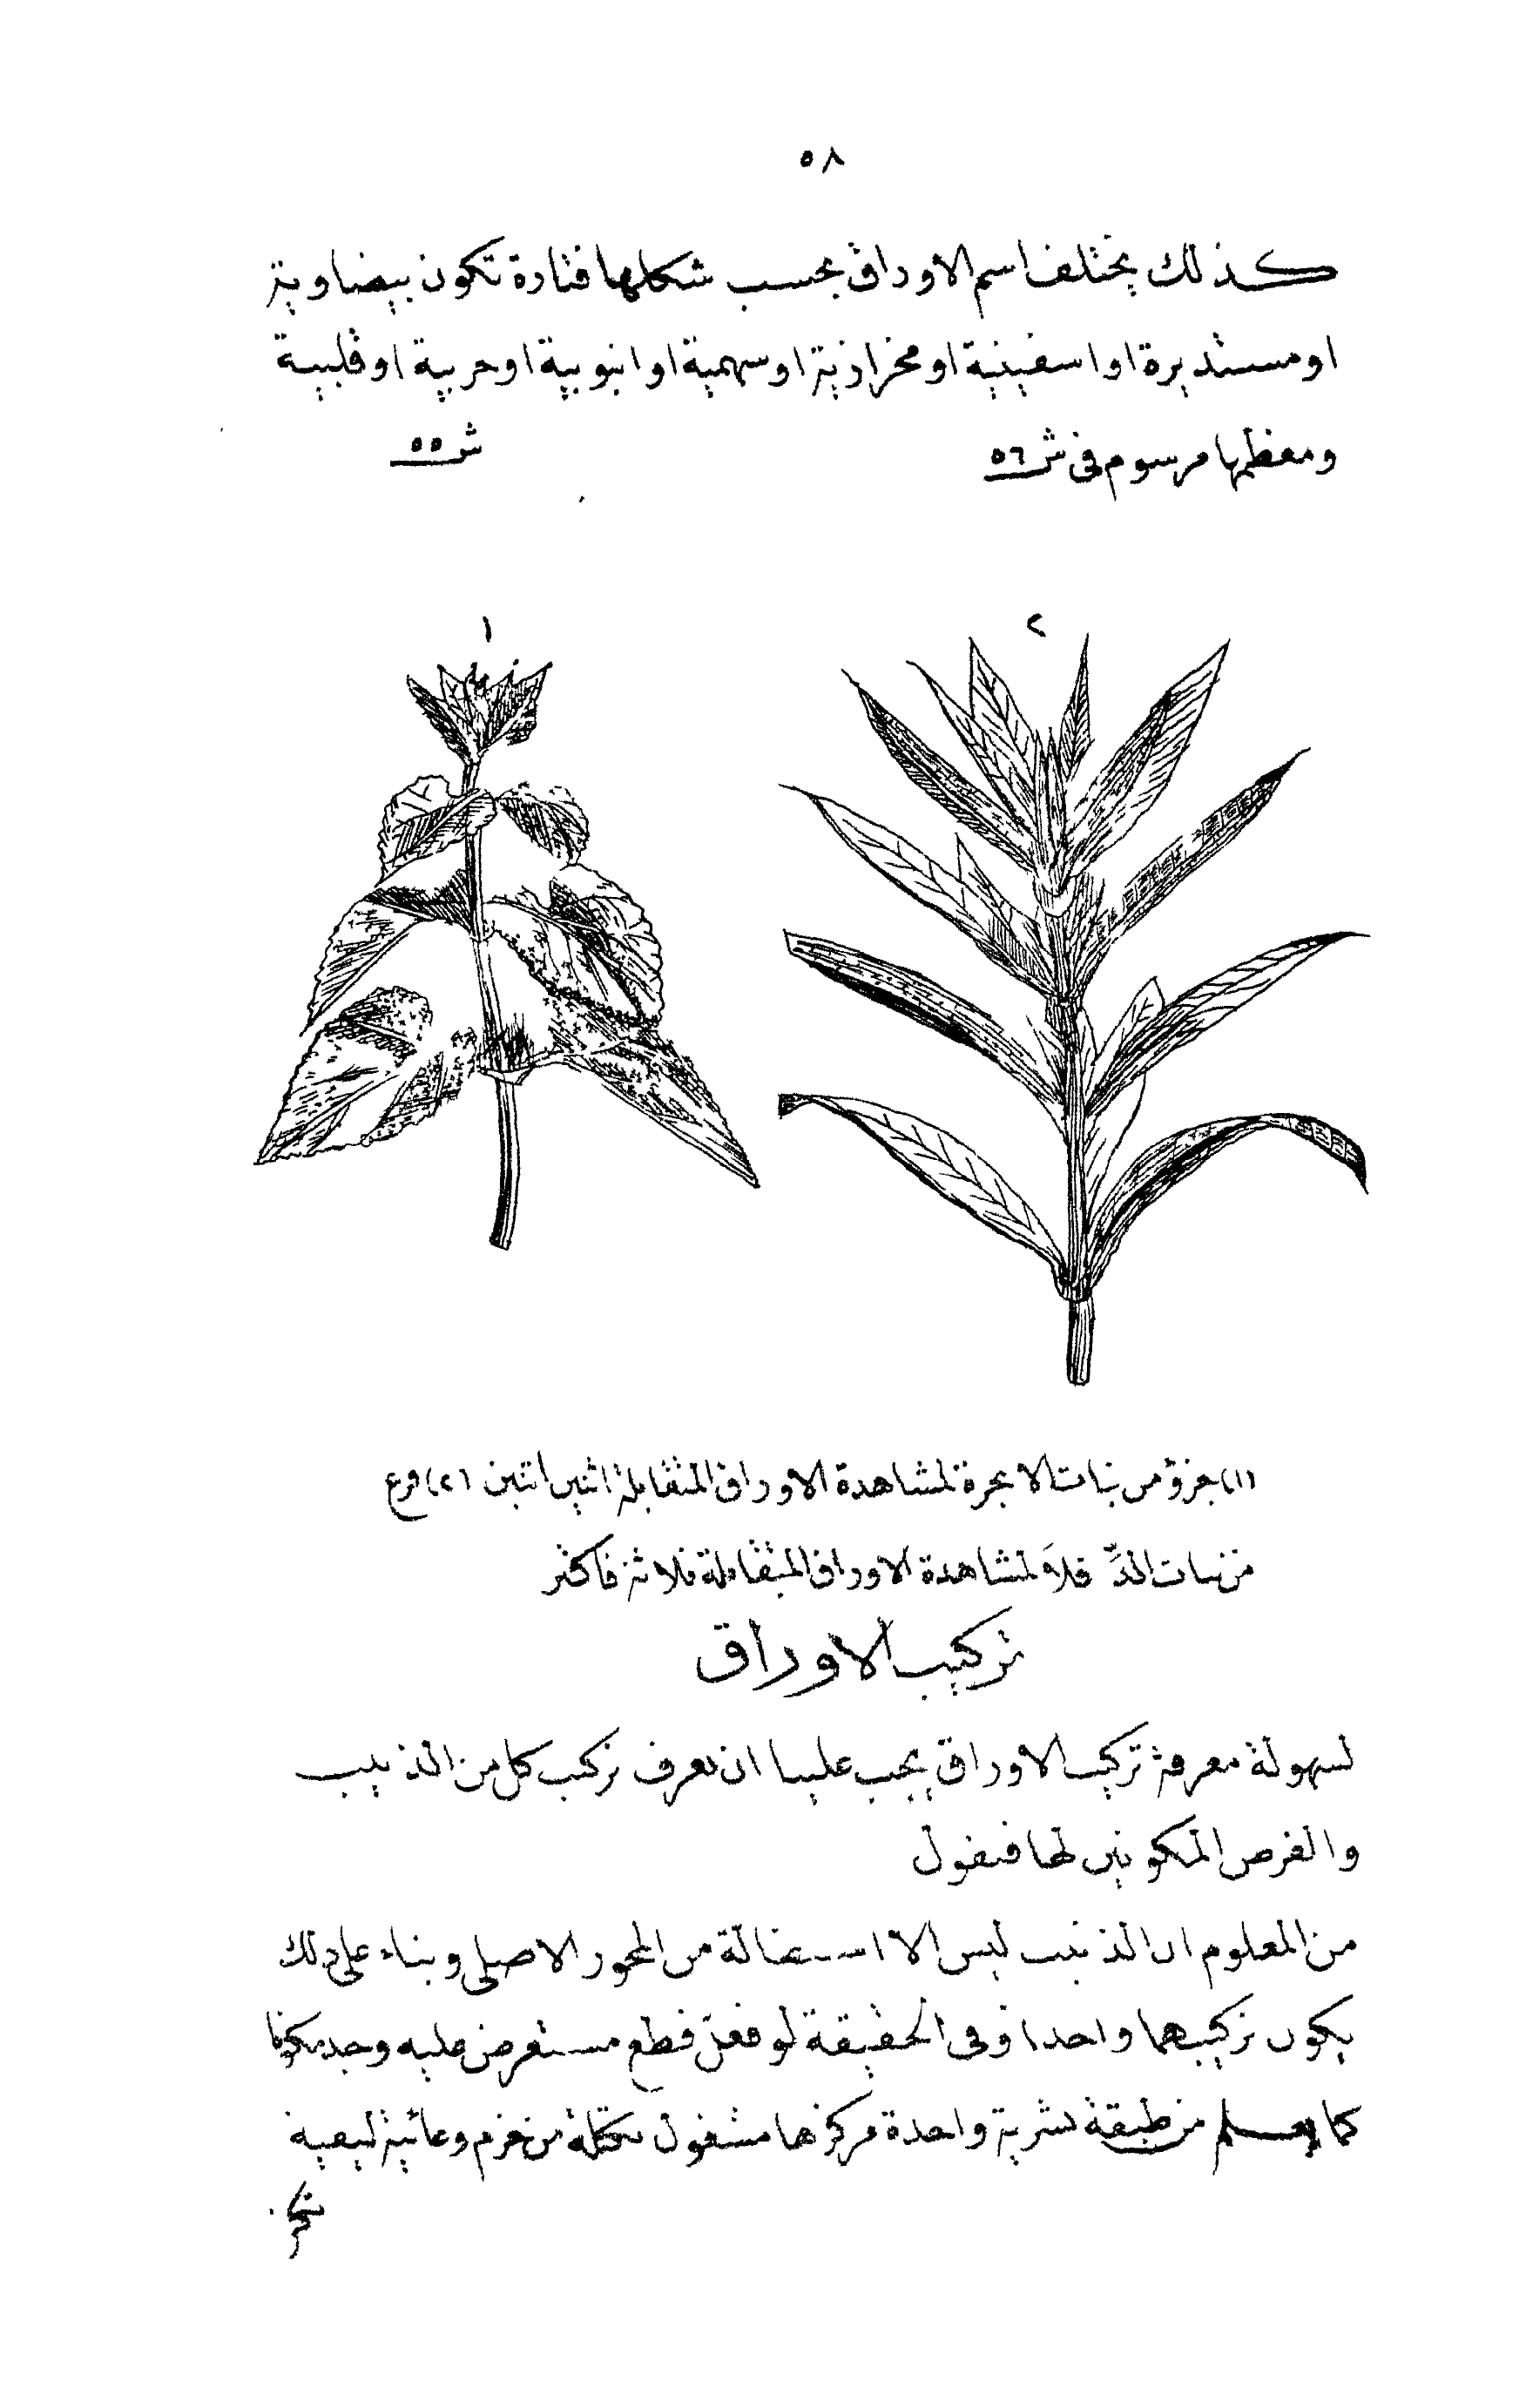 ٥٨
كذلك يختلف اسم الاوراق بحسب شكلها فتارة تكون بيضاوية
او مستديرة او اسفينية او مخرازية او سهمية او انبوبية او حربية او قلبية
ومعظمها مرسوم فى ش ٥٦
ش ٥٥
٢
١
(١) جزؤ من نبات الابجرة لمشاهدة الاوراق المتقابلة اثنين اثنين (٢) فرع
من نبات الدفلاَ لمشاهدة الاوراق المتقابلة ثلاثة فاكثر
تركيب الاوراق
لسهولة معرفة تركيب الاوراق يجب علينا ان نعرف تركيب كل من الذنيب
والقرص المكونين لها فنقول
من المعلوم ان الذنيب ليس الا استطالة من المحور الاصلى وبناء على ذلك
يكون تركيبهما واحدا وفى الحقيقة لو فعل قطع مستعرض عليه وجد مكونا
كما من طبقة بشرية واحدة مركزها مشغول بكتلة من حزم وعائية ليفية